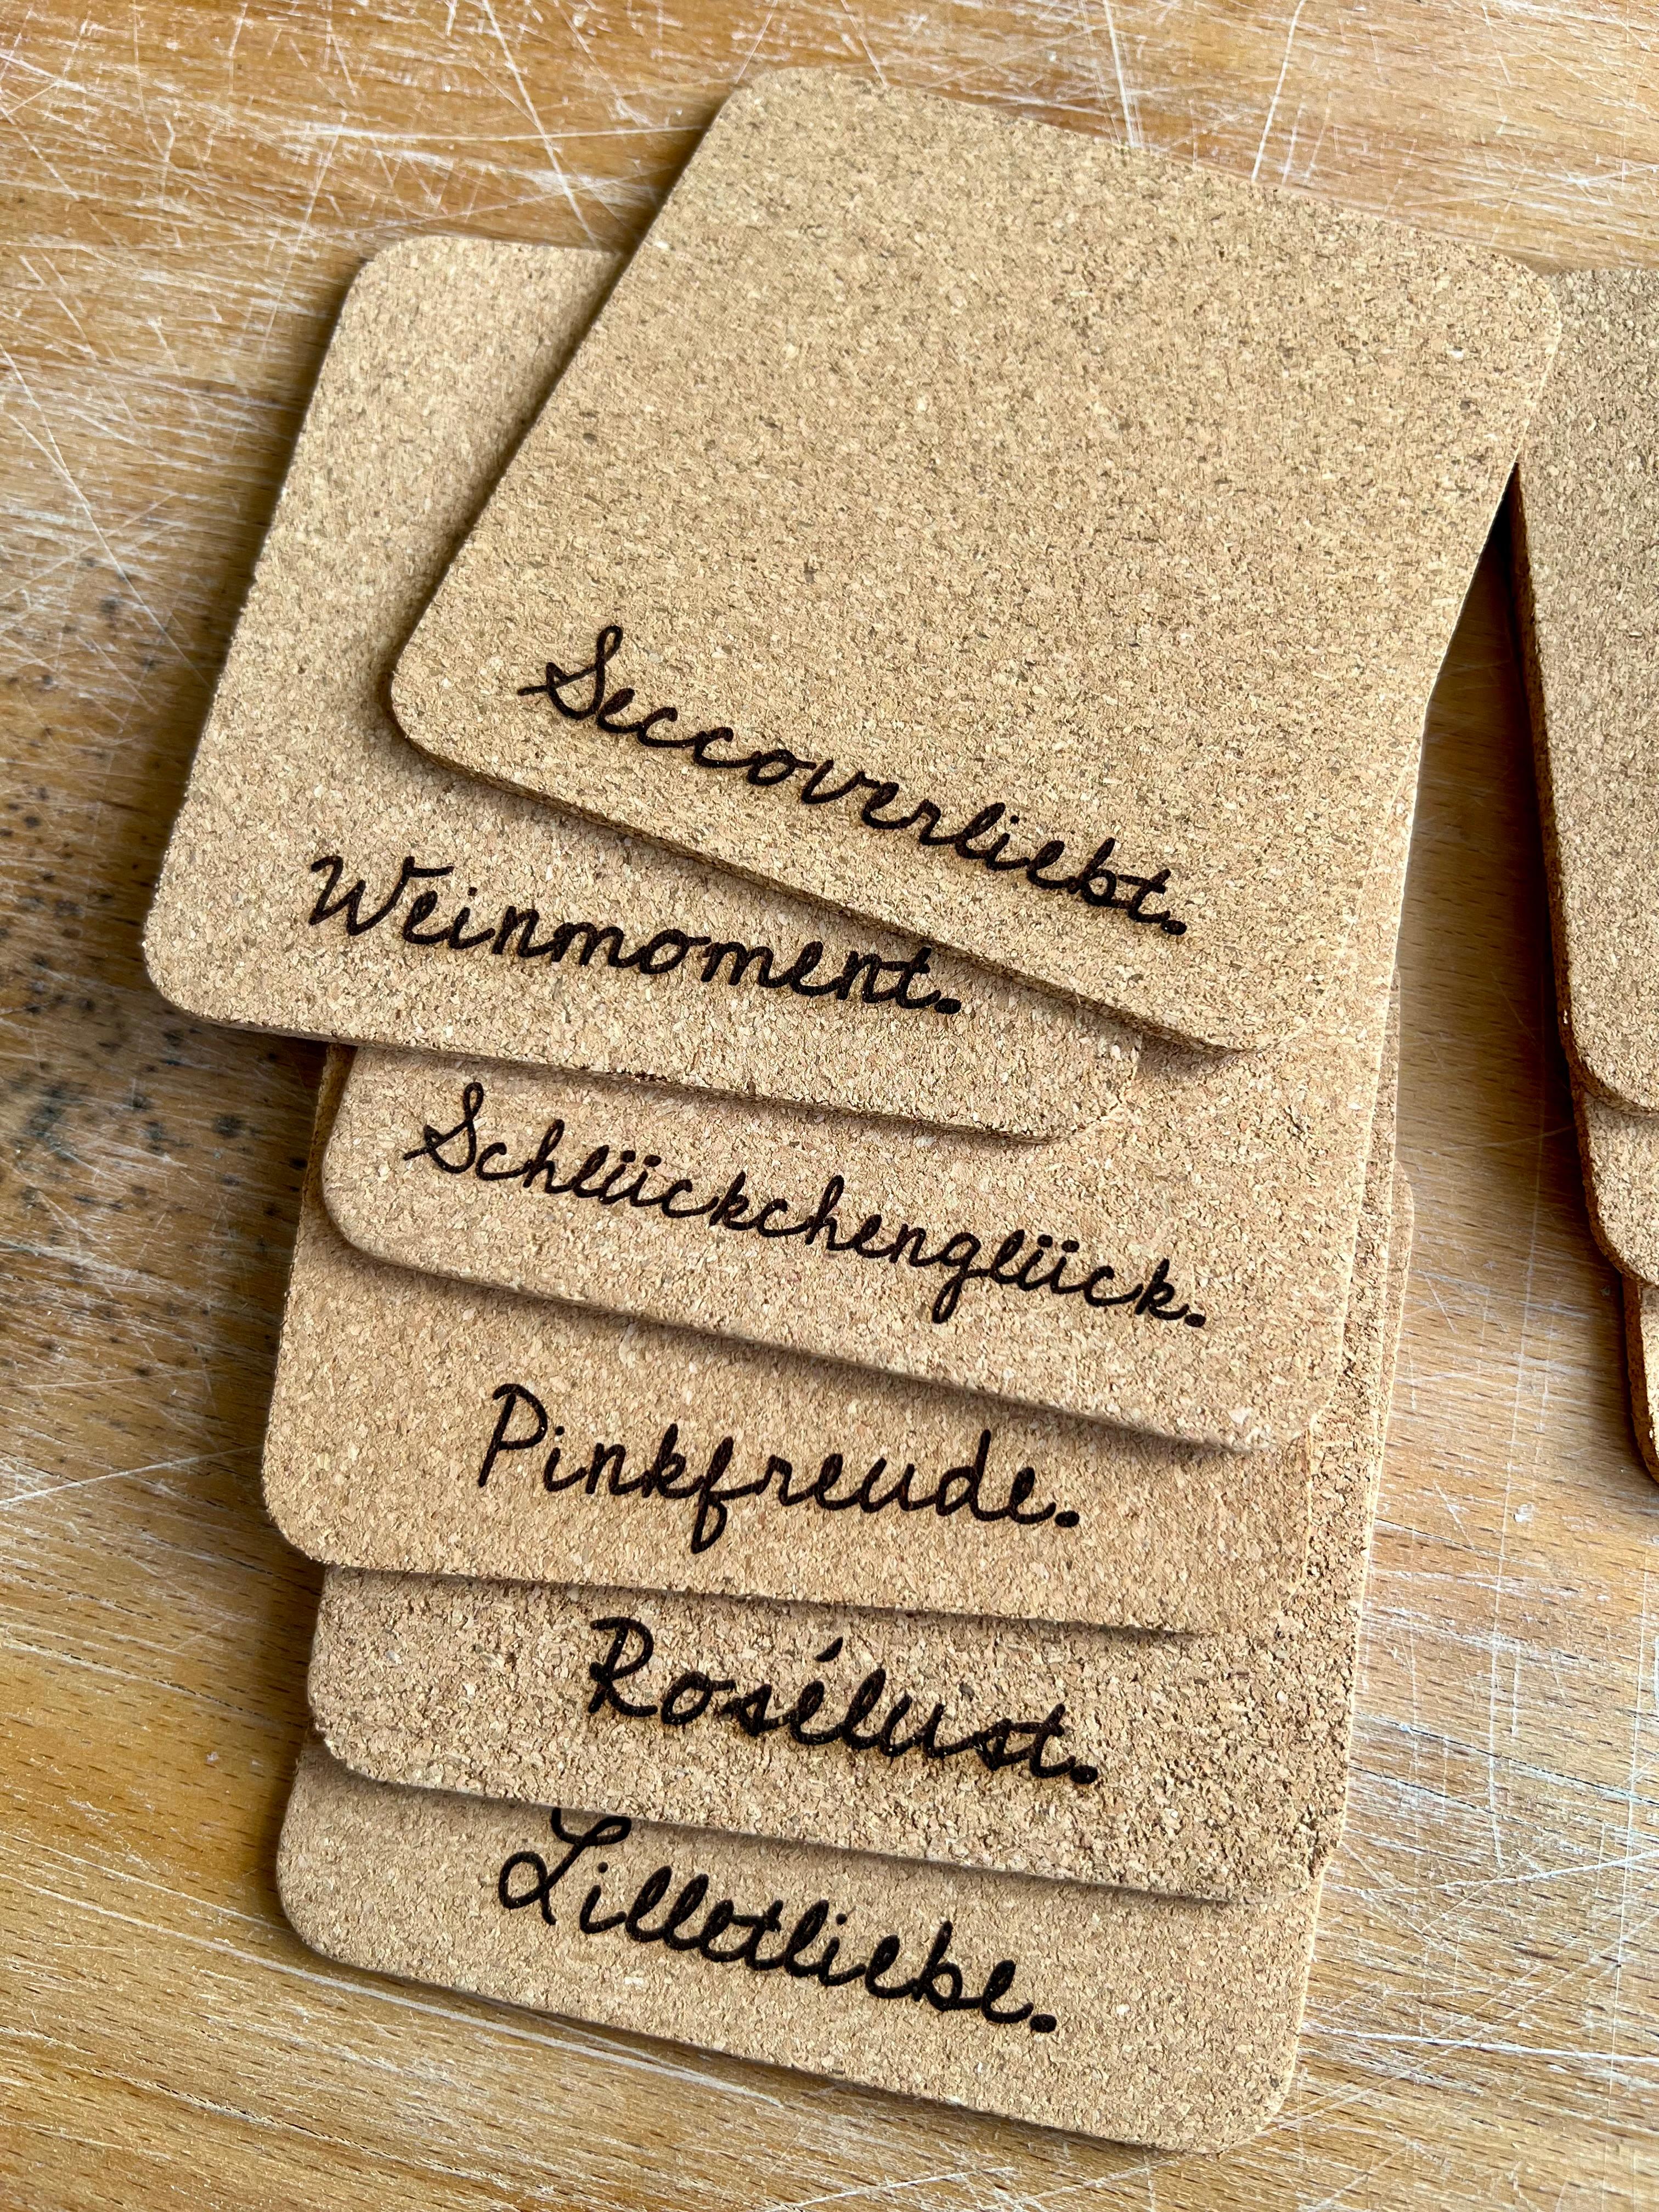 Seccoverliebt.
Weinmoment.
Schlückchenglück.
Pinkfreude.
Rosélust.
Lilletliebe.